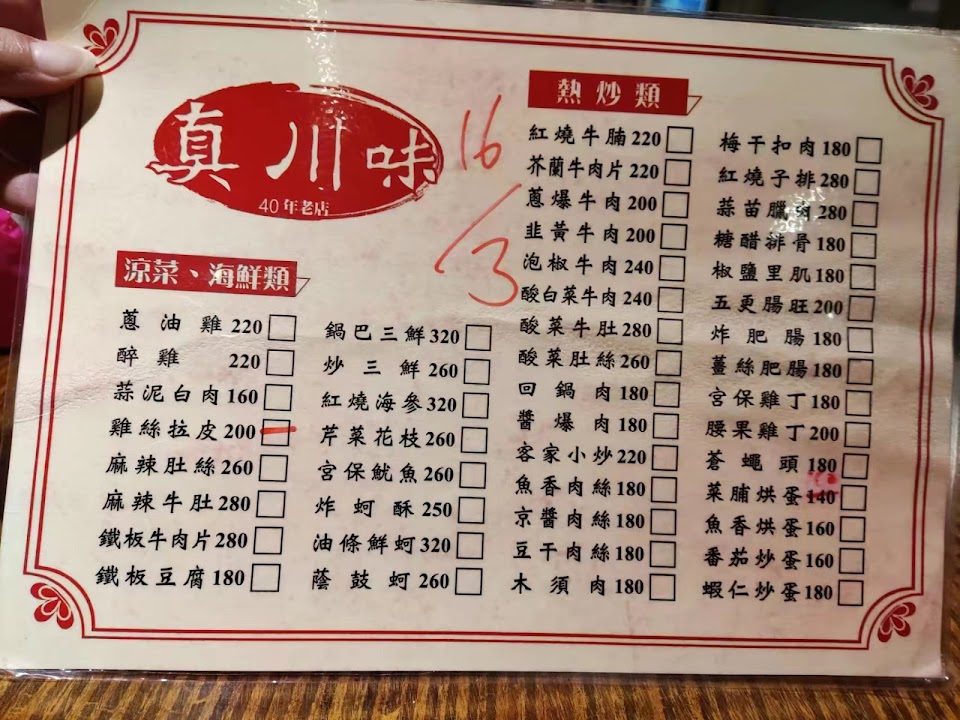 真川味
40年老店
16
/3
涼菜、海鮮類
蔥油雞 220
醉雞 220
蒜泥白肉 160
雞絲拉皮 200
麻辣肚絲 260
麻辣牛肚 280
鐵板牛肉片 280
鐵板豆腐 180
鍋巴三鮮 320
炒三鮮 260
紅燒海參 320
芹菜花枝 260
宮保魷魚 260
炸蚵酥 250
油條鮮蚵 320
蔭鼓蚵 260
熱炒類
紅燒牛腩 220
芥蘭牛肉片 220
蔥爆牛肉 200
韭黃牛肉 200
泡椒牛肉 240
酸白菜牛肉 240
酸菜牛肚 280
酸菜肚絲 260
回鍋肉 180
醬爆肉 180
客家小炒 220
魚香肉絲 180
京醬肉絲 180
豆干肉絲 180
木須肉 180
梅干扣肉 180
紅燒子排 280
蒜苗臘肉 280
糖醋排骨 180
椒鹽里肌 180
五更腸旺 200
炸肥腸 180
薑絲肥腸 180
宮保雞丁 180
腰果雞丁 200
蒼蠅頭 180
菜脯烘蛋 140
魚香烘蛋 160
番茄炒蛋 160
蝦仁炒蛋 180